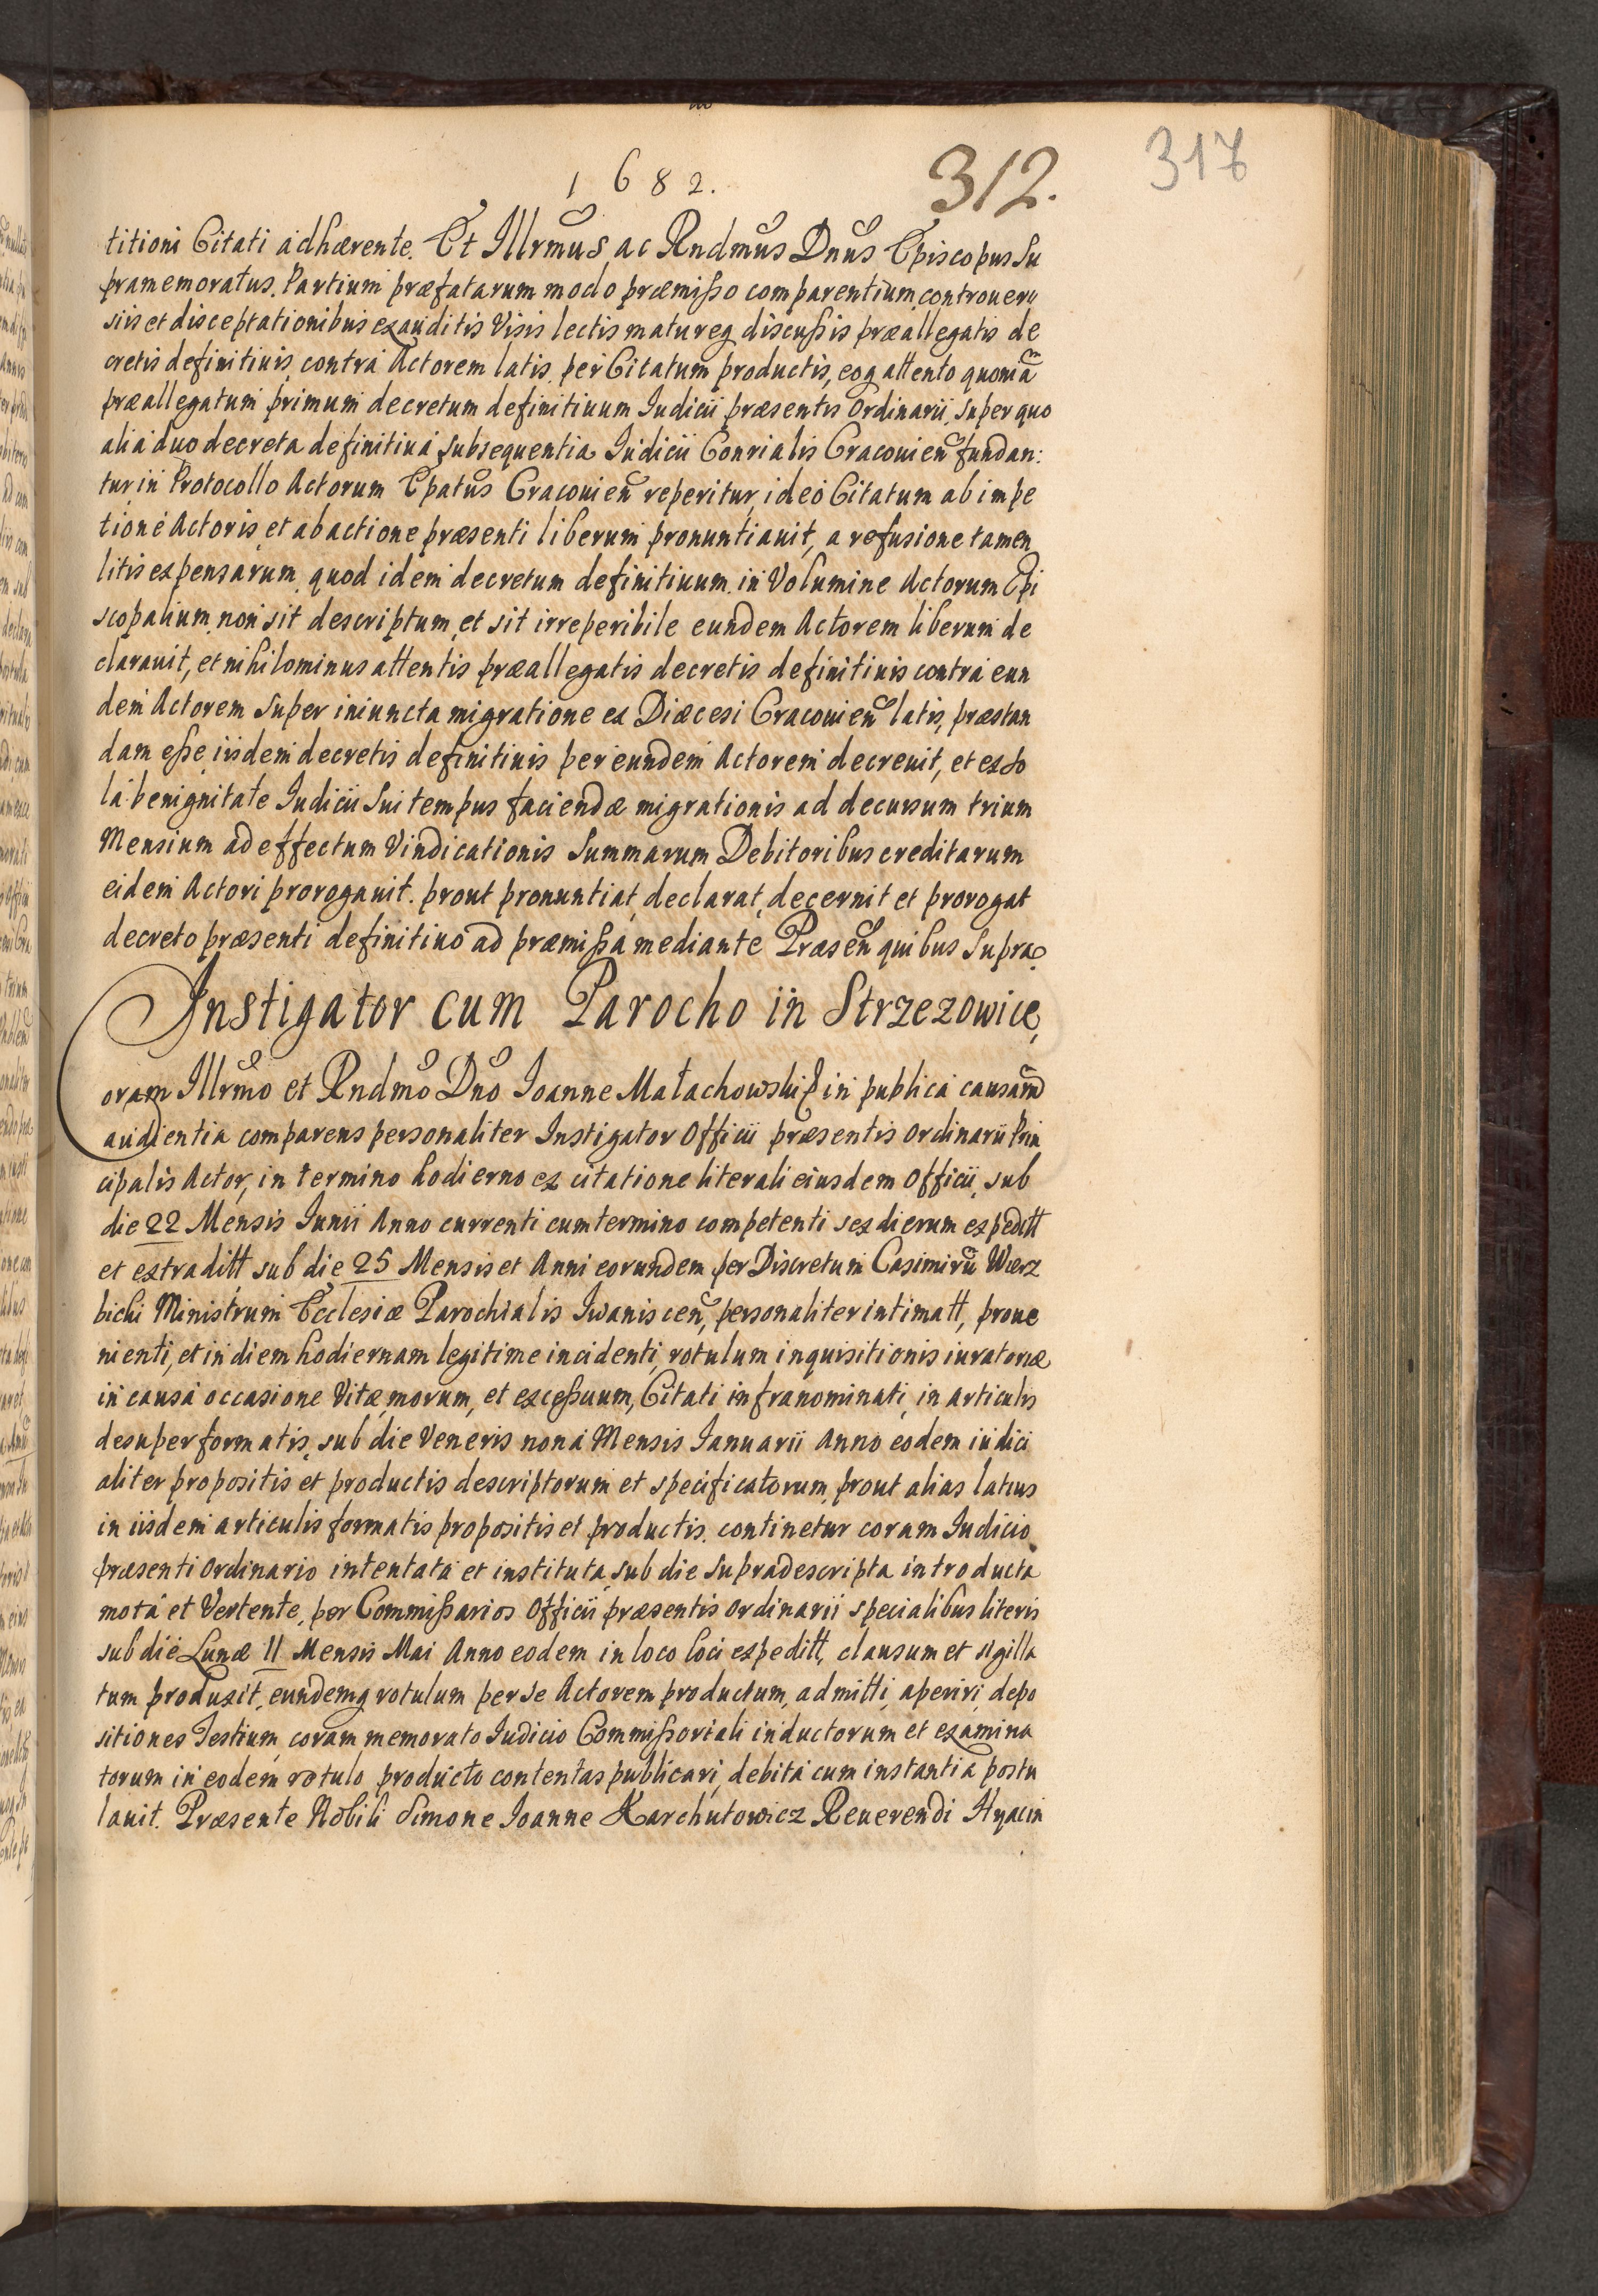 1682.
312.
317
titioni Citati adhærente. Et Illrmus ac Rndmus Dnus Episcopus Su
pramemoratus. Partium præfatarum modo præmisso comparentium controuer
siis et disceptationibus exauditis Visis lectis matureq discussis præallegatis de
cretis definitiuis contra Actorem latis per Citatum productis, eoq attento quoniam
præallegatum primum decretum definitiuum Iudicii præsentis Ordinarii, super quo
alia duo decreta definitiua subsequentia Iudicii Conrialis Cracouien fundan:
tur in Protocollo Actorum Epatus Cracouien reperitur, ideo Citatum ab impe
tione Actoris et ab actione præsenti liberum pronuntiauit, a refusione tamen
litis expensarum, quod idem decretum definitiuum in Volumine Actorum Epi
scopalium non sit descriptum, et sit irreperibile eundem Actorem liberum de
clarauit, et nihilominus attentis præallegatis decretis definitiuis contra eun
dem Actorem super iniuncta migratione ex Diæcesi Cracouien latis, præstan
dam esse iisdem decretis definitiuis per eundem Actorem decreuit, et ex so
la benignitate Iudicii Sui tempus faciendæ migrationis ad decursum trium
Mensium ad effectum Vindicationis Summarum Debitoribus creditarum
eidem Actori prorogauit. prout pronuntiat, declarat, decernit et prorogat
decreto præsenti definitiuo ad præmissa mediante Præsen quibus Supra.
Instigator cum Parocho in Strzezowice,
Coram Illrmo et Rndmo Dno Ioanne Małachowski E in publica causarum
audientia comparens personaliter Instigator Officii præsentis Ordinarii Prin
cipalis Actor, in termino hodierno ex citatione literali eiusdem Officii, sub
die 22 Mensis Iunii Anno currenti cum termino competenti sex dierum expeditt
et extraditt sub die 25 Mensis et Anni eorundem per Discretum Casimirũ Wierz
bicki Ministrum Ecclesiæ Parochialis Iwaniscen, personaliter intimatt, proue
nienti, et in diem hodiernam legitime incidenti, rotulum inquisitionis iuratoriæ
in causa occasione Vitæ, morum, et excessuum, Citati infranominati, in articulis
desuper formatis, sub die Veneris nona Mensis Ianuarii Anno eodem iudici
aliter propositis et productis descriptorum et specificatorum, prout alias latius
in iisdem articulis formatis propositis et productis continetur coram Iudicio
præsenti Ordinario intentata et instituta, sub die Supradescripta introducta
mota et Vertente, per Commissarios Officii præsentis Ordinarii specialibus literis
sub die Lunæ 11 Mensis Mai Anno eodem in loco loci expeditt, clausum et sigilla
tum produxit, eundemq rotulum per se Actorem productum, admitti, aperiri, depo
sitiones Testium, coram memorato Iudicio Commissoriali inductorum et examina
torum in eodem rotulo producto contentas publicari, debita cum instantia postu
lauit. Præsente Nobili Simone Ioanne Karchutowicz Reuerendi Hyacin